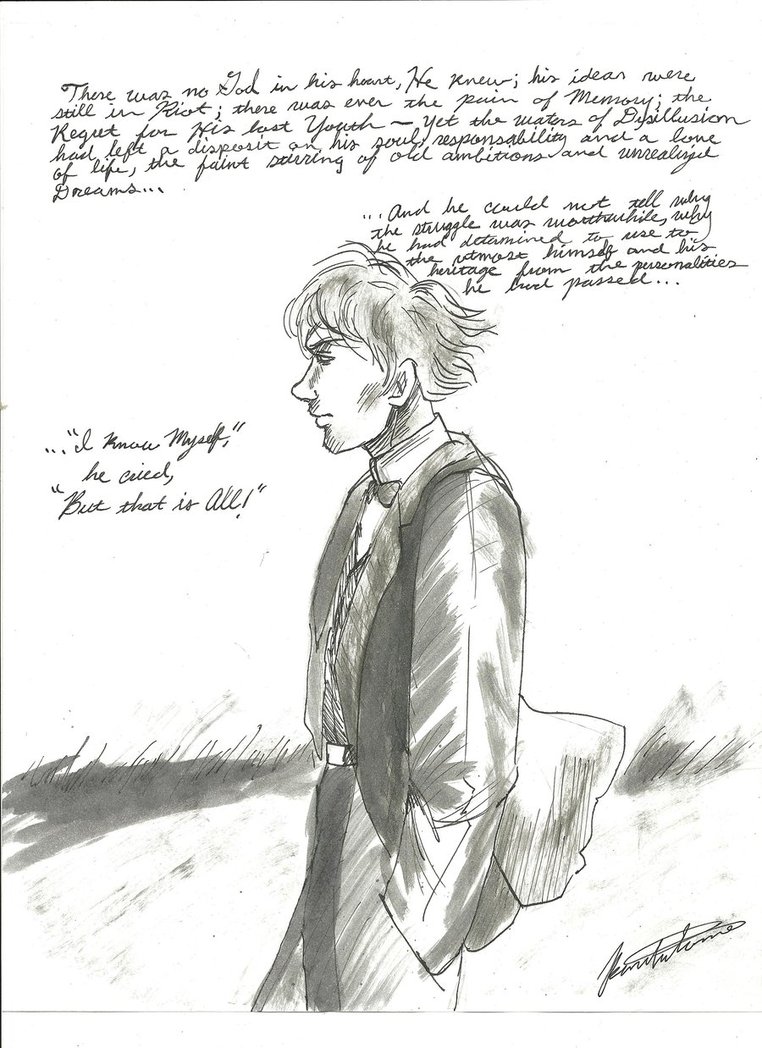 There was no God in his heart, He knew; his ideas were
still in Riot; there was ever the pain of Memory; the
Regret for His lost Youth — Yet the waters of Disillusion
had left a disposit on his soul, responsability and a love
of life, the faint stirring of old ambitions and unrealized
Dreams...
...And he could not tell why
the struggle was worthwhile, why
he had determined to use to
the utmost himself and his
heritage from the personalities
he had passed...
..."I know Myself,"
he cried,
"But that is All!"